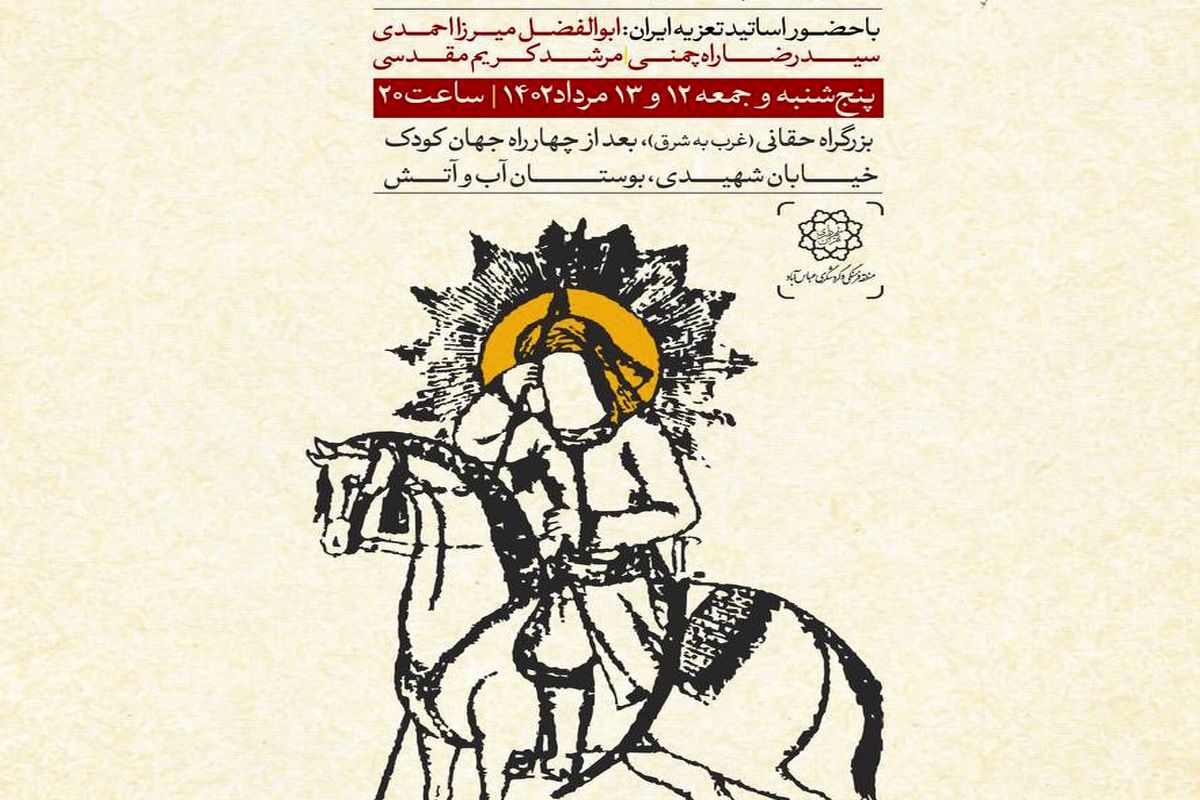 با حضور اساتید تعزیه ایران: ابوالفضل میرزااحمدی
سیدرضا راه‌چمنی | مرشد کریم مقدسی
پنج‌شنبه و جمعه ۱۲ و ۱۳ مرداد ۱۴۰۲ | ساعت ۲۰
بزرگراه حقانی (غرب به شرق)، بعد از چهارراه جهان کودک
خیابان شهیدی، بوستان آب و آتش
شهرداری تهران
منطقه فرهنگی و گردشگری عباس‌آباد